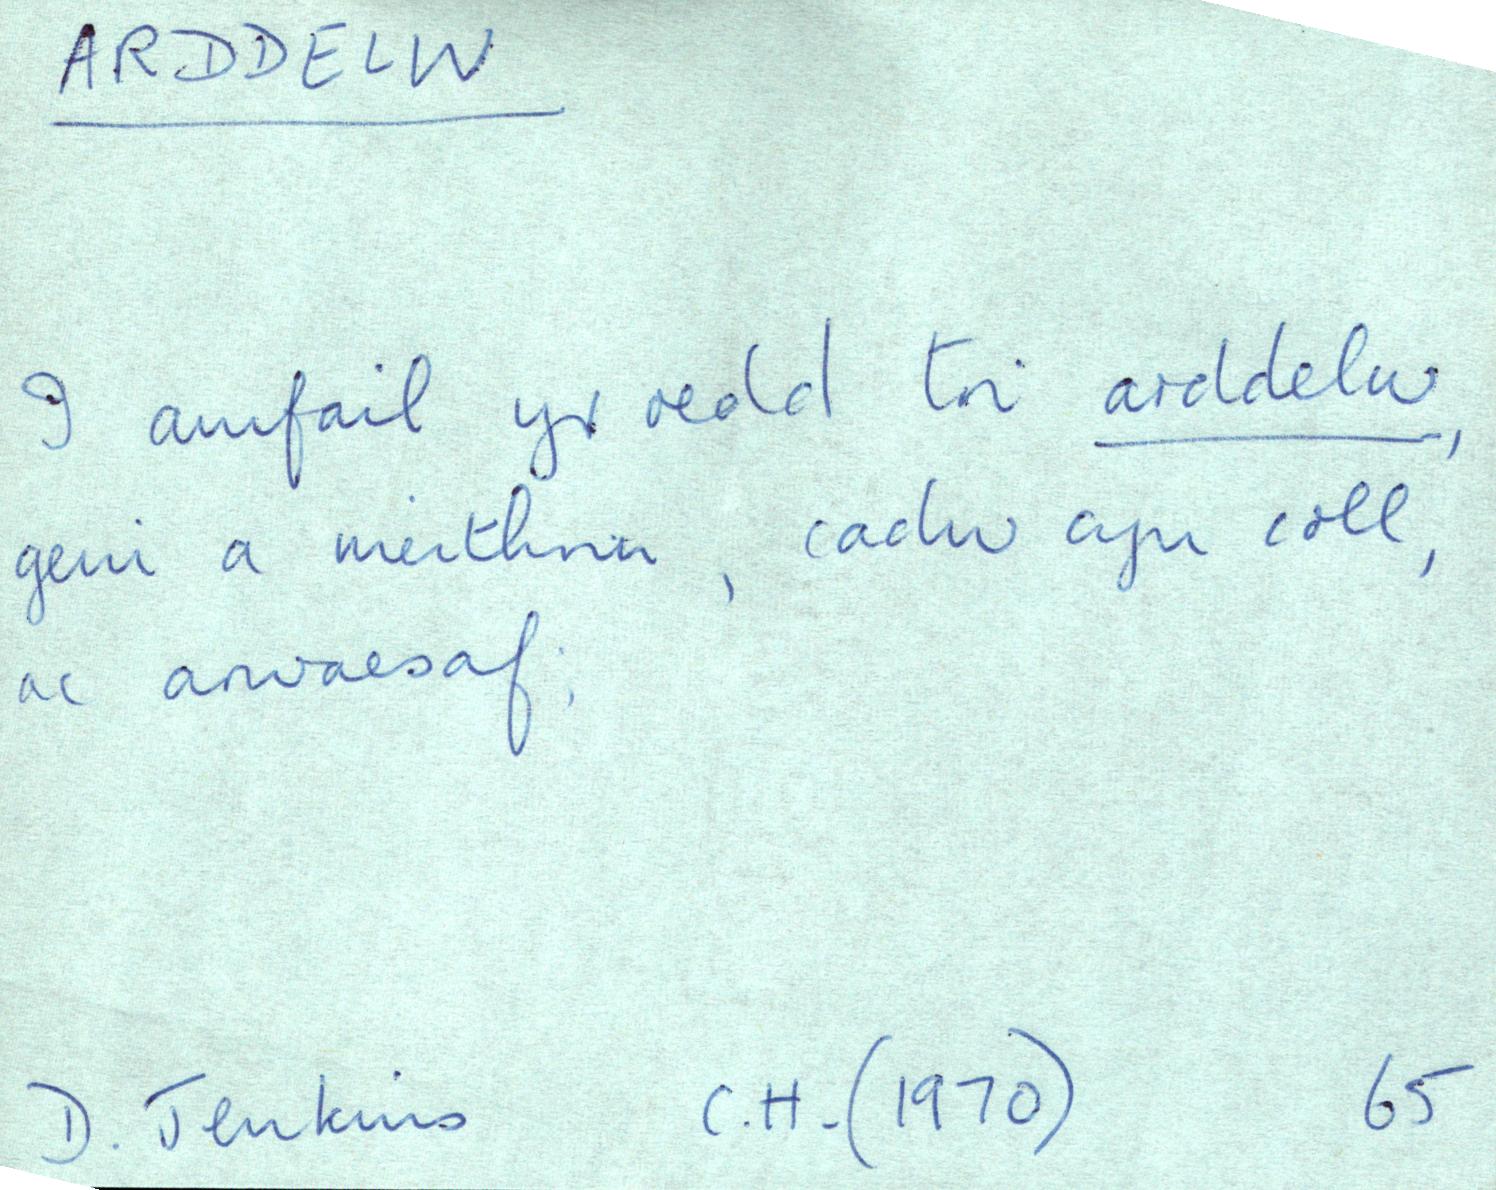 ARDDELW
I anifail yr oedd tri arddelw,
geni a meithrin, cadw cyn coll,
ac arwaesaf;
D. Jenkins C.H. (1970) 65